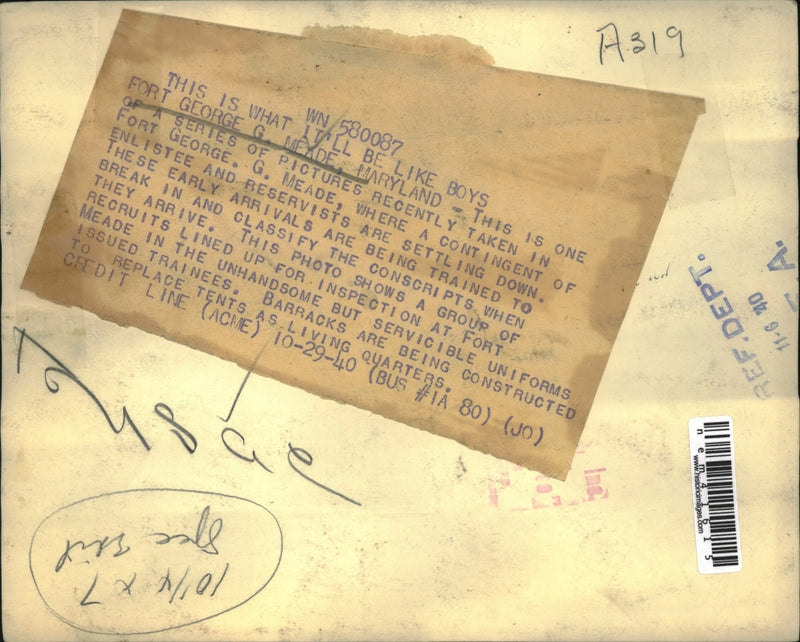 A319
WN 580087
THIS IS WHAT IT'LL BE LIKE BOYS
FORT GEORGE G. MEADE, MARYLAND - THIS IS ONE
OF A SERIES OF PICTURES RECENTLY TAKEN IN
FORT GEORGE. G. MEADE, WHERE A CONTINGENT OF
ENLISTEE AND RESERVISTS ARE SETTLING DOWN.
THESE EARLY ARRIVALS ARE BEING TRAINED TO
BREAK IN AND CLASSIFY THE CONSCRIPTS WHEN
THEY ARRIVE. THIS PHOTO SHOWS A GROUP OF
RECRUITS LINED UP FOR INSPECTION AT FORT
MEADE IN THE UNHANDSOME BUT SERVICIBLE UNIFORMS
ISSUED TRAINEES. BARRACKS ARE BEING CONSTRUCTED
TO REPLACE TENTS AS LIVING QUARTERS.
CREDIT LINE (ACME) 10-29-40 (BUS #1A 80) (JO)
REF. DEPT.
11-6 40
A.
Inc.
nem41615
www.historicimages.com
10 1/4 x 7